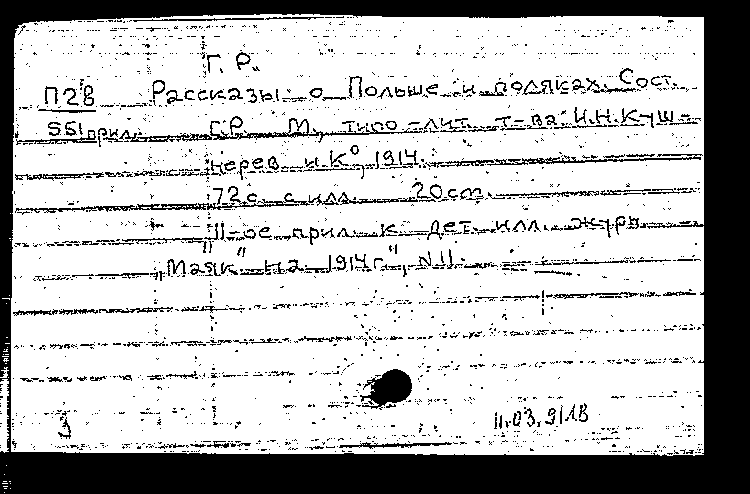 Г. Р.
П28 Рассказы о Польше и поляках. Сост.
551прил. Г.Р. М., типо-лит. т-ва И.Н.Куш-
нерев и К°, 1914.
72с. с илл. 20см.
"11-ое прил. к дет. илл. журн.
"Маяк" на 1914г.", N11.
3
11.03.91